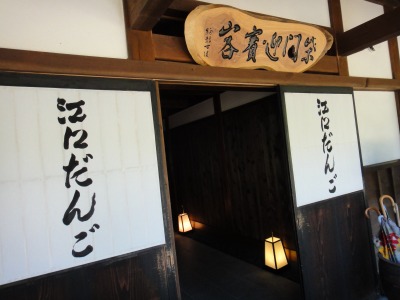 柴門迎賓客
江口だんご
江口だんご